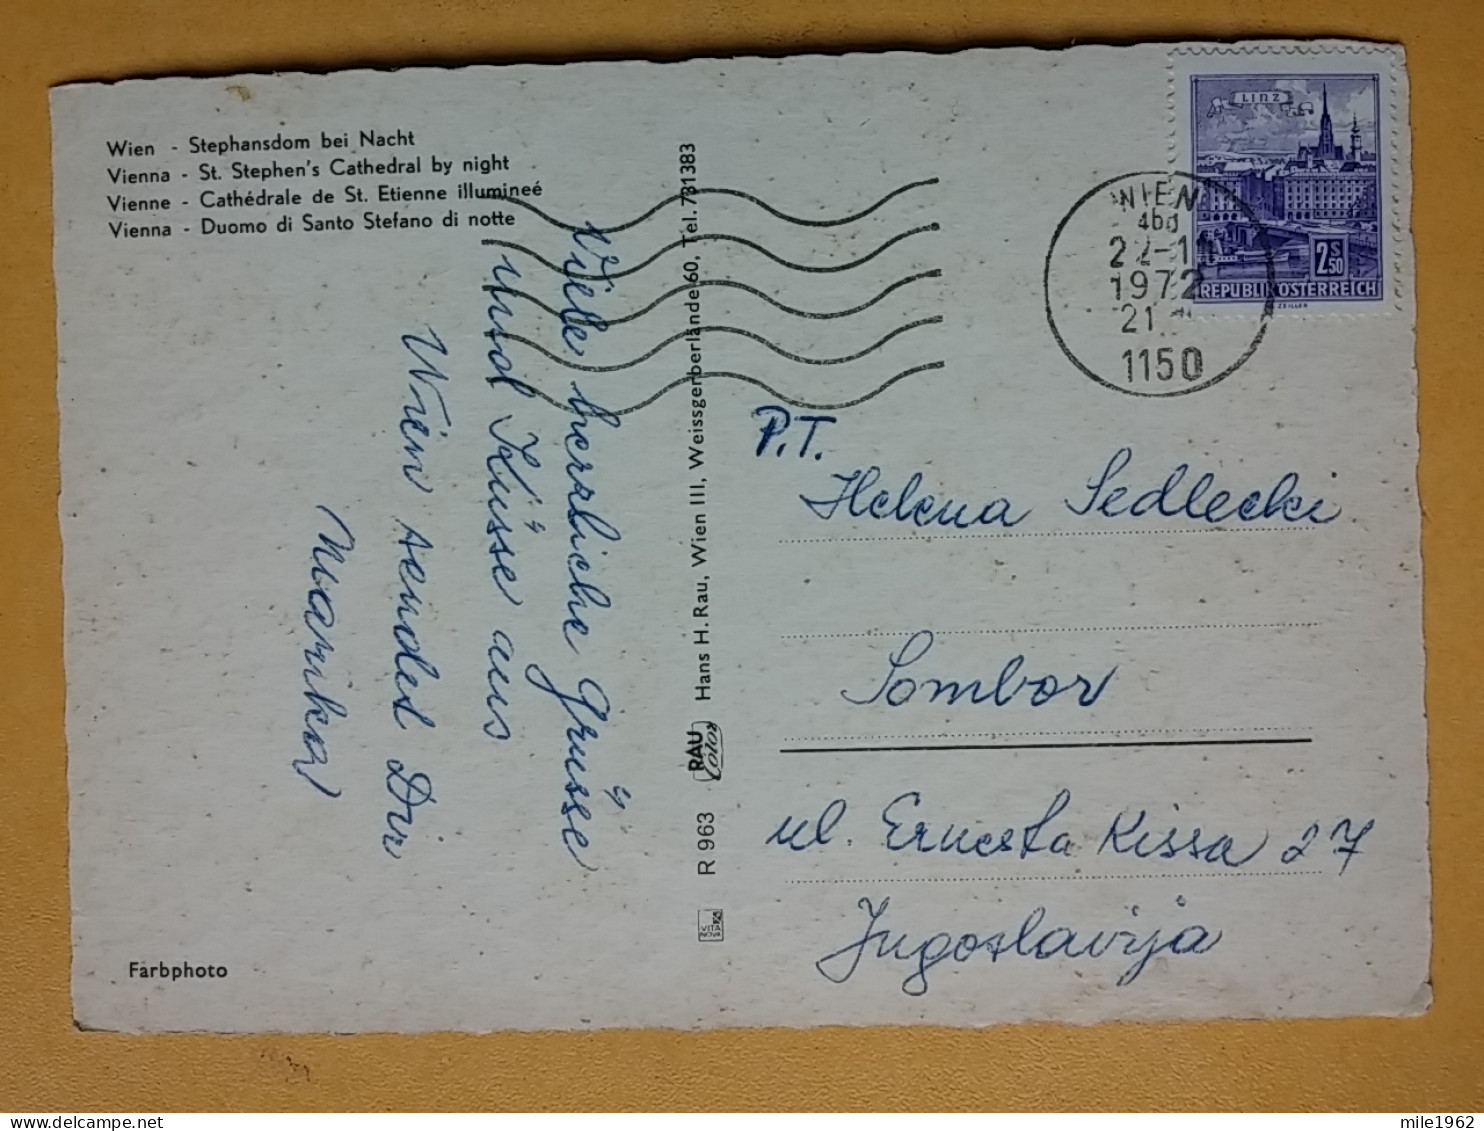 Wien - Stephansdom bei Nacht
Vienna - St. Stephen's Cathedral by night
Vienne - Cathédrale de St. Etienne illumineé
Vienna - Duomo di Santo Stefano di notte
Viele herzliche Grüsse
und Küsse aus
Wien sendet Dir
Marika
Farbphoto
R 963 RAU Color Hans H. Rau, Wien III, Weissgerberlände 60, Tel. 731383
VITA NOVA
LINZ
2 S 50
REPUBLIK ÖSTERREICH
ZEILER
WIEN
1972
21
1150
P.T.
Helena Sedlecki
Sombor
ul. Ernesta Kissa 27
Jugoslavija
mile1962